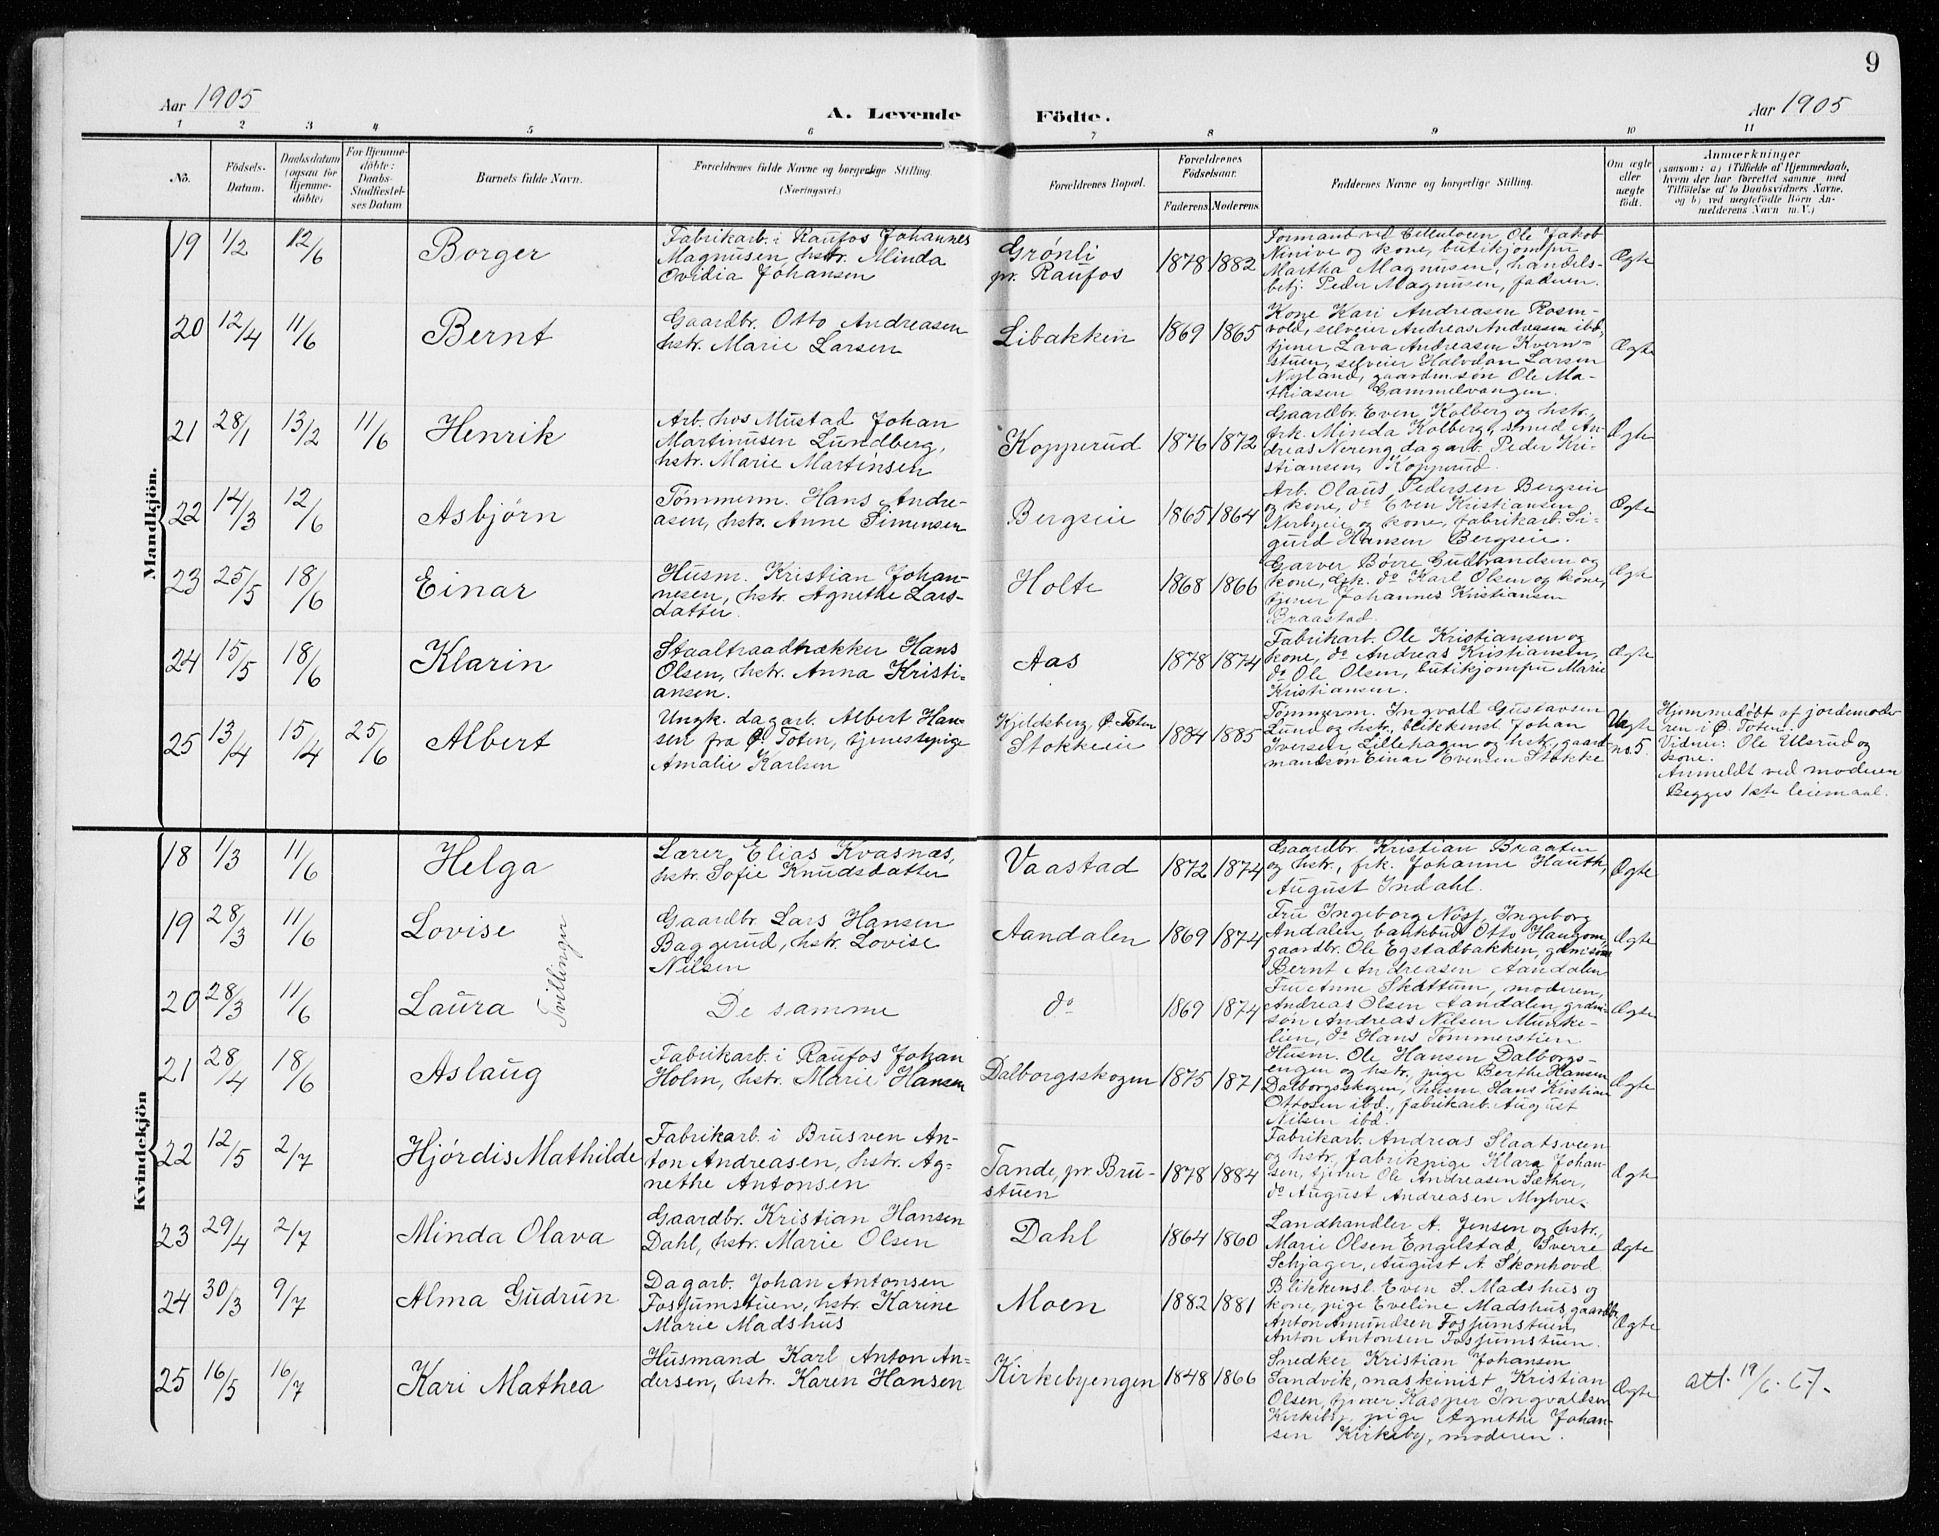 9
Aar 1905
A. Levende Födte.
Aar 1905
1 2 3 4 5 6 7 8 9 10 11
No.
Födsels-
Datum.
Daabsdatum
(ogsaa for
Hjemme-
döbte)
For Hjemme-
döbte:
Daabs-
Stadfæstel-
ses Datum
Barnets fulde Navn.
Forældrenes fulde Navne og borgerlige Stilling.
(Næringsvei.)
Forældrenes Bopæl.
Forældrenes
Födselsaar.
Faderens. Moderens.
Faddernes Navne og borgerlige Stilling.
Om ægte
eller
uægte
födt.
Anmærkninger
(saasom: a) i Tilfælde af Hjemmedaab,
hvem der har forrettet samme med
Tilföielse af to Daabsvidners Navne,
og b) ved uægtefödte Börn An-
melderens Navn m.V.)
Mandkjön.
19 1/2 12/6
Borger
Fabrikarb. i Raufos Johannes
Magnusen, hstr. Minda
Ovidia Johansen
Grønli
pr. Raufos
1878 1882
Formand ved Cellulosen Ole Jakob
Ninive og kone, butikjomfru
Martha Magnusen, handels-
betj. Peder Magnusen, faderen.
Ægte
20 12/4 11/6
Bernt
Gaardbr. Otto Andreasen
hstr. Marie Larsen
Libakken
1869 1865
Kone Kari Andreasen Rosen-
vold, selveier Andreas Andreasen ibd,
tjener Lava Andreasen Kvern-
stuen, selveier Halvdan Larsen
Nyland, gaardm.søn Ole Ma-
thiasen Gammelvangen.
Ægte
21 28/1 13/2 11/6
Henrik
Arb. hos Mustad Johan
Martinusen Lundberg,
hstr. Marie Martinsen
Kopperud
1876 1872
Gaardbr. Even Kolberg og hstr.,
frk. Minda Kolberg, smed An-
dreas Nereng, dagarb. Peder Kri-
stiansen, Kopperud.
Ægte
22 14/3 12/6
Asbjørn
Tømmerm. Hans Andre-
asen, hstr. Anne Simensen
Bergseie
1865 1864
Arb. Olaus Pedersen Bergseie
og kone, do Even Kristiansen
Nerbyeie og kone, fabrikarb. Si-
gurd Hansen Bergseie.
Ægte
23 25/5 18/6
Einar
Husm. Kristian Johan-
nesen, hstr. Agnethe Lars-
datter.
Holte
1868 1866
Garver Bøire Gudbrandsen og
kone, do Karl Olsen og kone,
tjener Johannes Kristiansen
Braastad.
Ægte
24 15/5 18/6
Klarin
Staaltraadtrækker Hans
Olsen, hstr. Anna Kristi-
ansen.
Aas
1878 1874
Fabrikarb. Ole Kristiansen og
kone, do Andreas Kristiansen,
do Ole Olsen, butikjomfru Marie
Kristiansen.
Ægte
25 13/4 15/4 25/6
Albert
Ungk. dagarb. Albert Han-
sen fra Ø. Toten, tjenestepige
Amalie Karlsen
Kjeldsberg, Ø. Toten
Stokkeie
1884 1885
Tømmerm. Ingvald Gustavsen
Lund og hstr., blikkensl. Johan
Iversen, Lillehagen og hstr., gaard-
mandsøn Einar Evensen Stokke
Uægte
no. 5.
Hjemmedøbt af jordemode-
ren i Ø. Toten.
Vidner: Ole Ulsrud og
kone.
Anmeldt ved moderen
Begges 1ste leiemaal.
Kvindekjön
18 1/3 11/6
Helga
Lærer Elias Kvasnæs,
hstr. Sofie Knudsdatter
Vaastad
1872 1874
Gaardbr. Kristian Braaten
og hstr., frk. Johanne Hauth,
August Indahl.
Ægte
19 28/3 11/6
Lovise
Tvillinger
Gaardbr. Lars Hansen
Baggerud, hstr. Lovise
Nilsen
Aandalen
1869 1874
Fru Ingeborg Nøss, Ingeborg
Andalen, bankbud Otto Haugom,
gaardbr. Ole Egstadbakken,
Bernt Andreasen Aandalen
Ægte
20 28/3 11/6
Laura
De samme
do
1869 1874
Fru Anne Skattum, moderen,
Andreas Olsen Aandalen, grdm.-
søn Andreas Nilsen Munke-
lien, do Hans Tømmerstien
Ægte
21 28/4 18/6
Aslaug
Fabrikarb. i Raufos Johan
Holm, hstr. Marie Hansen
Dalborgsskogen
1875 1871
Husm. Ole Hansen Dalborgs-
engen og hstr., pige Berthe Hansen
Dalborgsskogen, husm. Hans Kristian
Ottosen ibd., fabrikarb. August
Nilsen ibd.
Ægte
22 12/5 2/7
Hjørdis Mathilde
Fabrikarb. i Brusven An-
ton Andreasen, hstr. Ag-
nethe Antonsen
Tande, pr. Bru-
stuen
1878 1884
Fabrikarb. Andreas Slaatsveen
og hstr., fabrikpige Klara Johan-
sen, tjener Ole Andreasen Sæther,
do August Andreasen Myhre.
Ægte
23 29/4 2/7
Minda Olava
Gaardbr. Kristian Hansen
Dahl, hstr. Marie Olsen
Dahl
1864 1860
Landhandler A. Jensen og hstr.,
Marie Olsen Engelstad, Sverre
Schjager, August A. Skonhovd
Ægte
24 30/3 9/7
Alma Gudrun
Dagarb. Johan Antonsen
Fossumstuen, hstr. Karine
Marie Madshus
Moen
1882 1881
Blikkensl. Even S. Madshus og
kone, pige Eveline Madshus, gaardbr.
Anton Amundsen Fossumstuen,
Anton Antonsen Fossumstuen.
Ægte
25 16/5 16/7
Kari Mathea
Husmand Karl Anton An-
dersen, hstr. Karen Hansen
Kirkebyengen
1848 1866
Snedker Kristian Johansen
Sandvik, maskinist Kristian
Olsen, tjener Kasper Ingvaldsen
Kirkeby, pige Agnethe Johan-
sen Kirkeby, moderen.
Ægte
att. 19/6. 67.